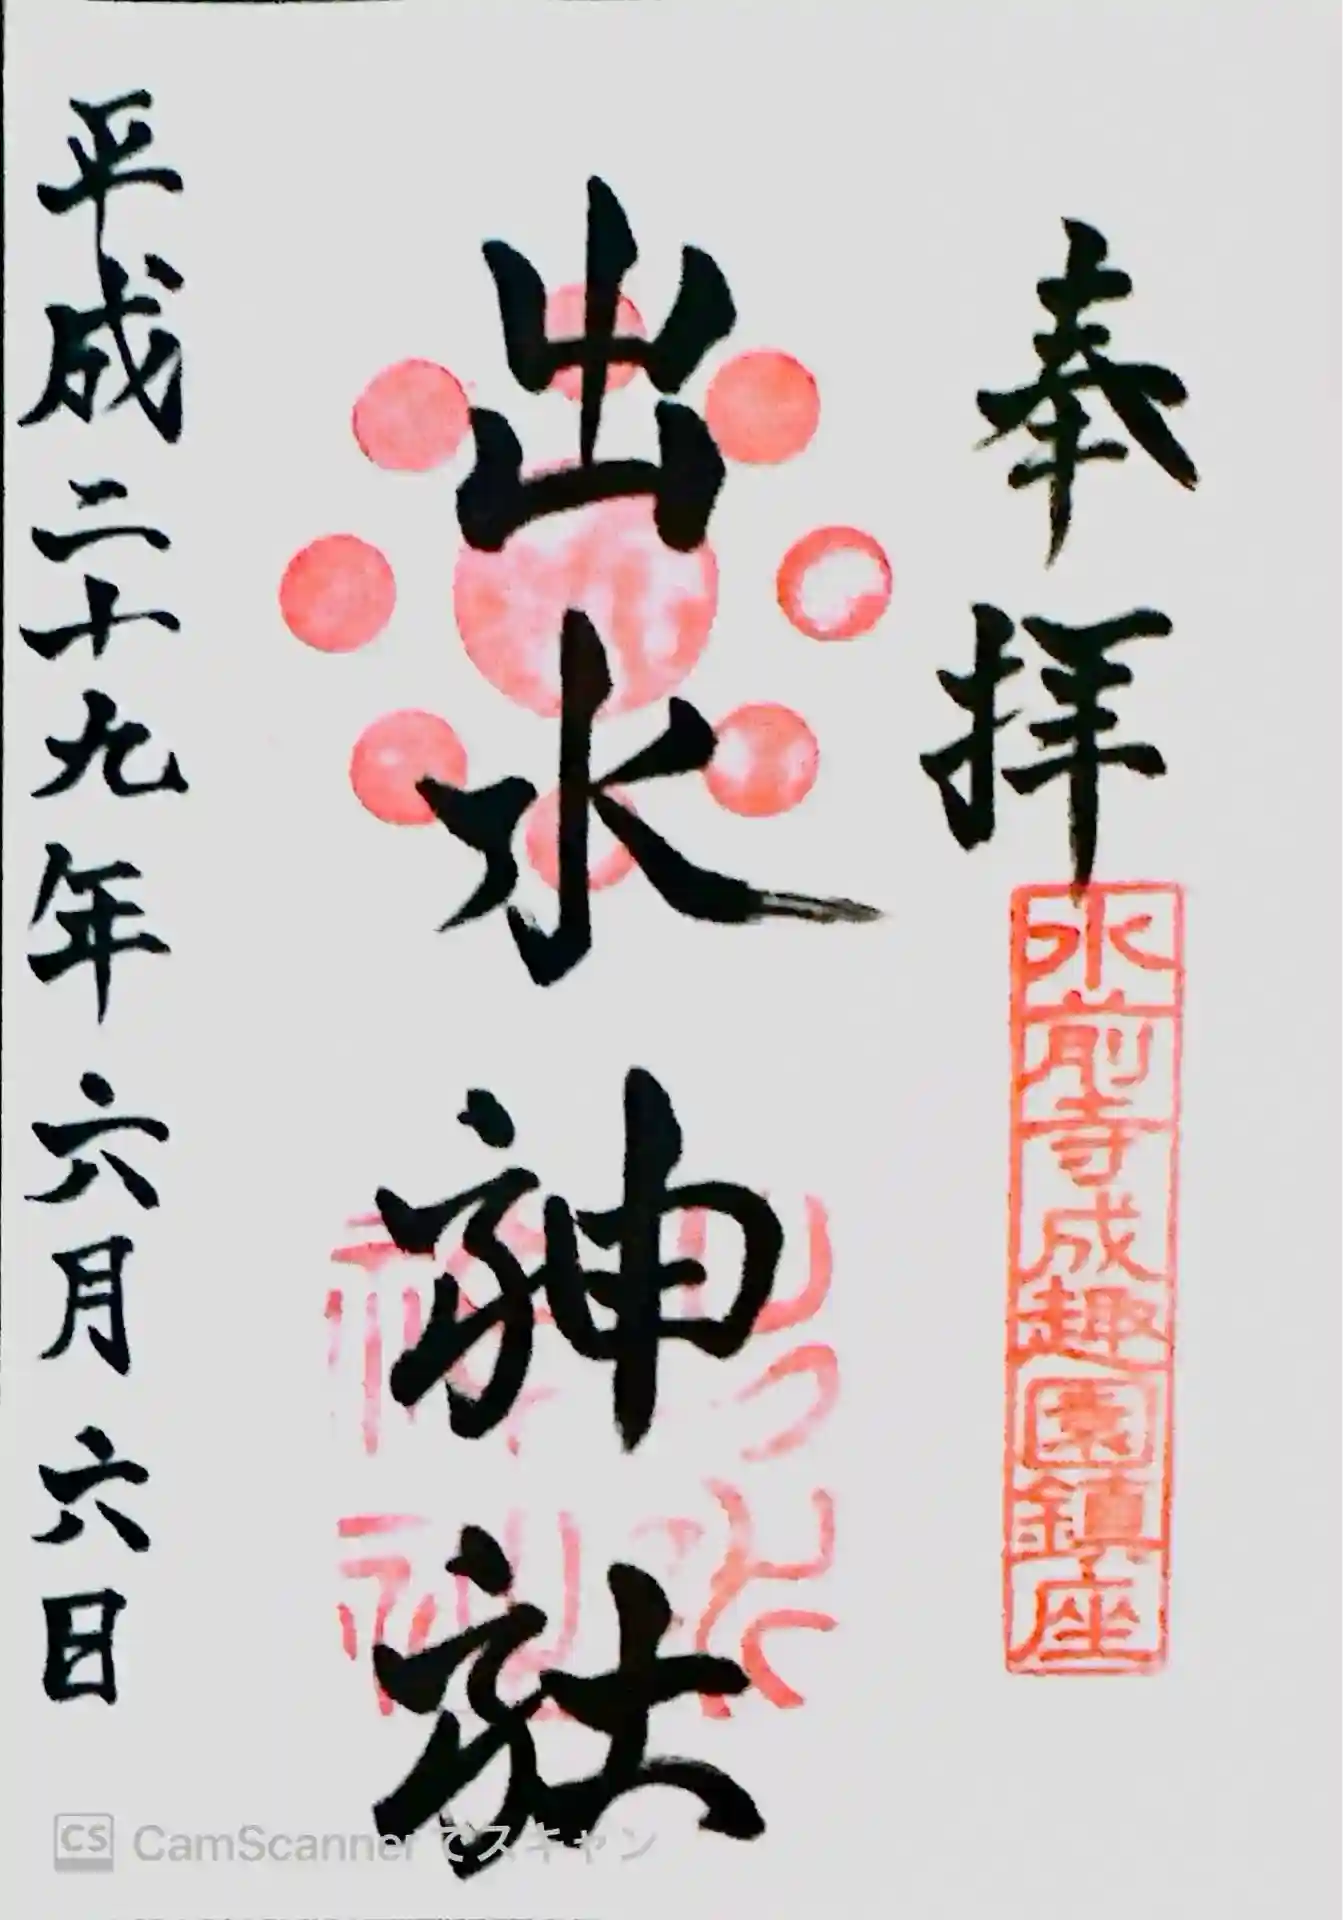 奉拝
水前寺成趣園鎮座
出水神社
出水神社
平成二十九年六月六日
CS CamScannerでスキャン